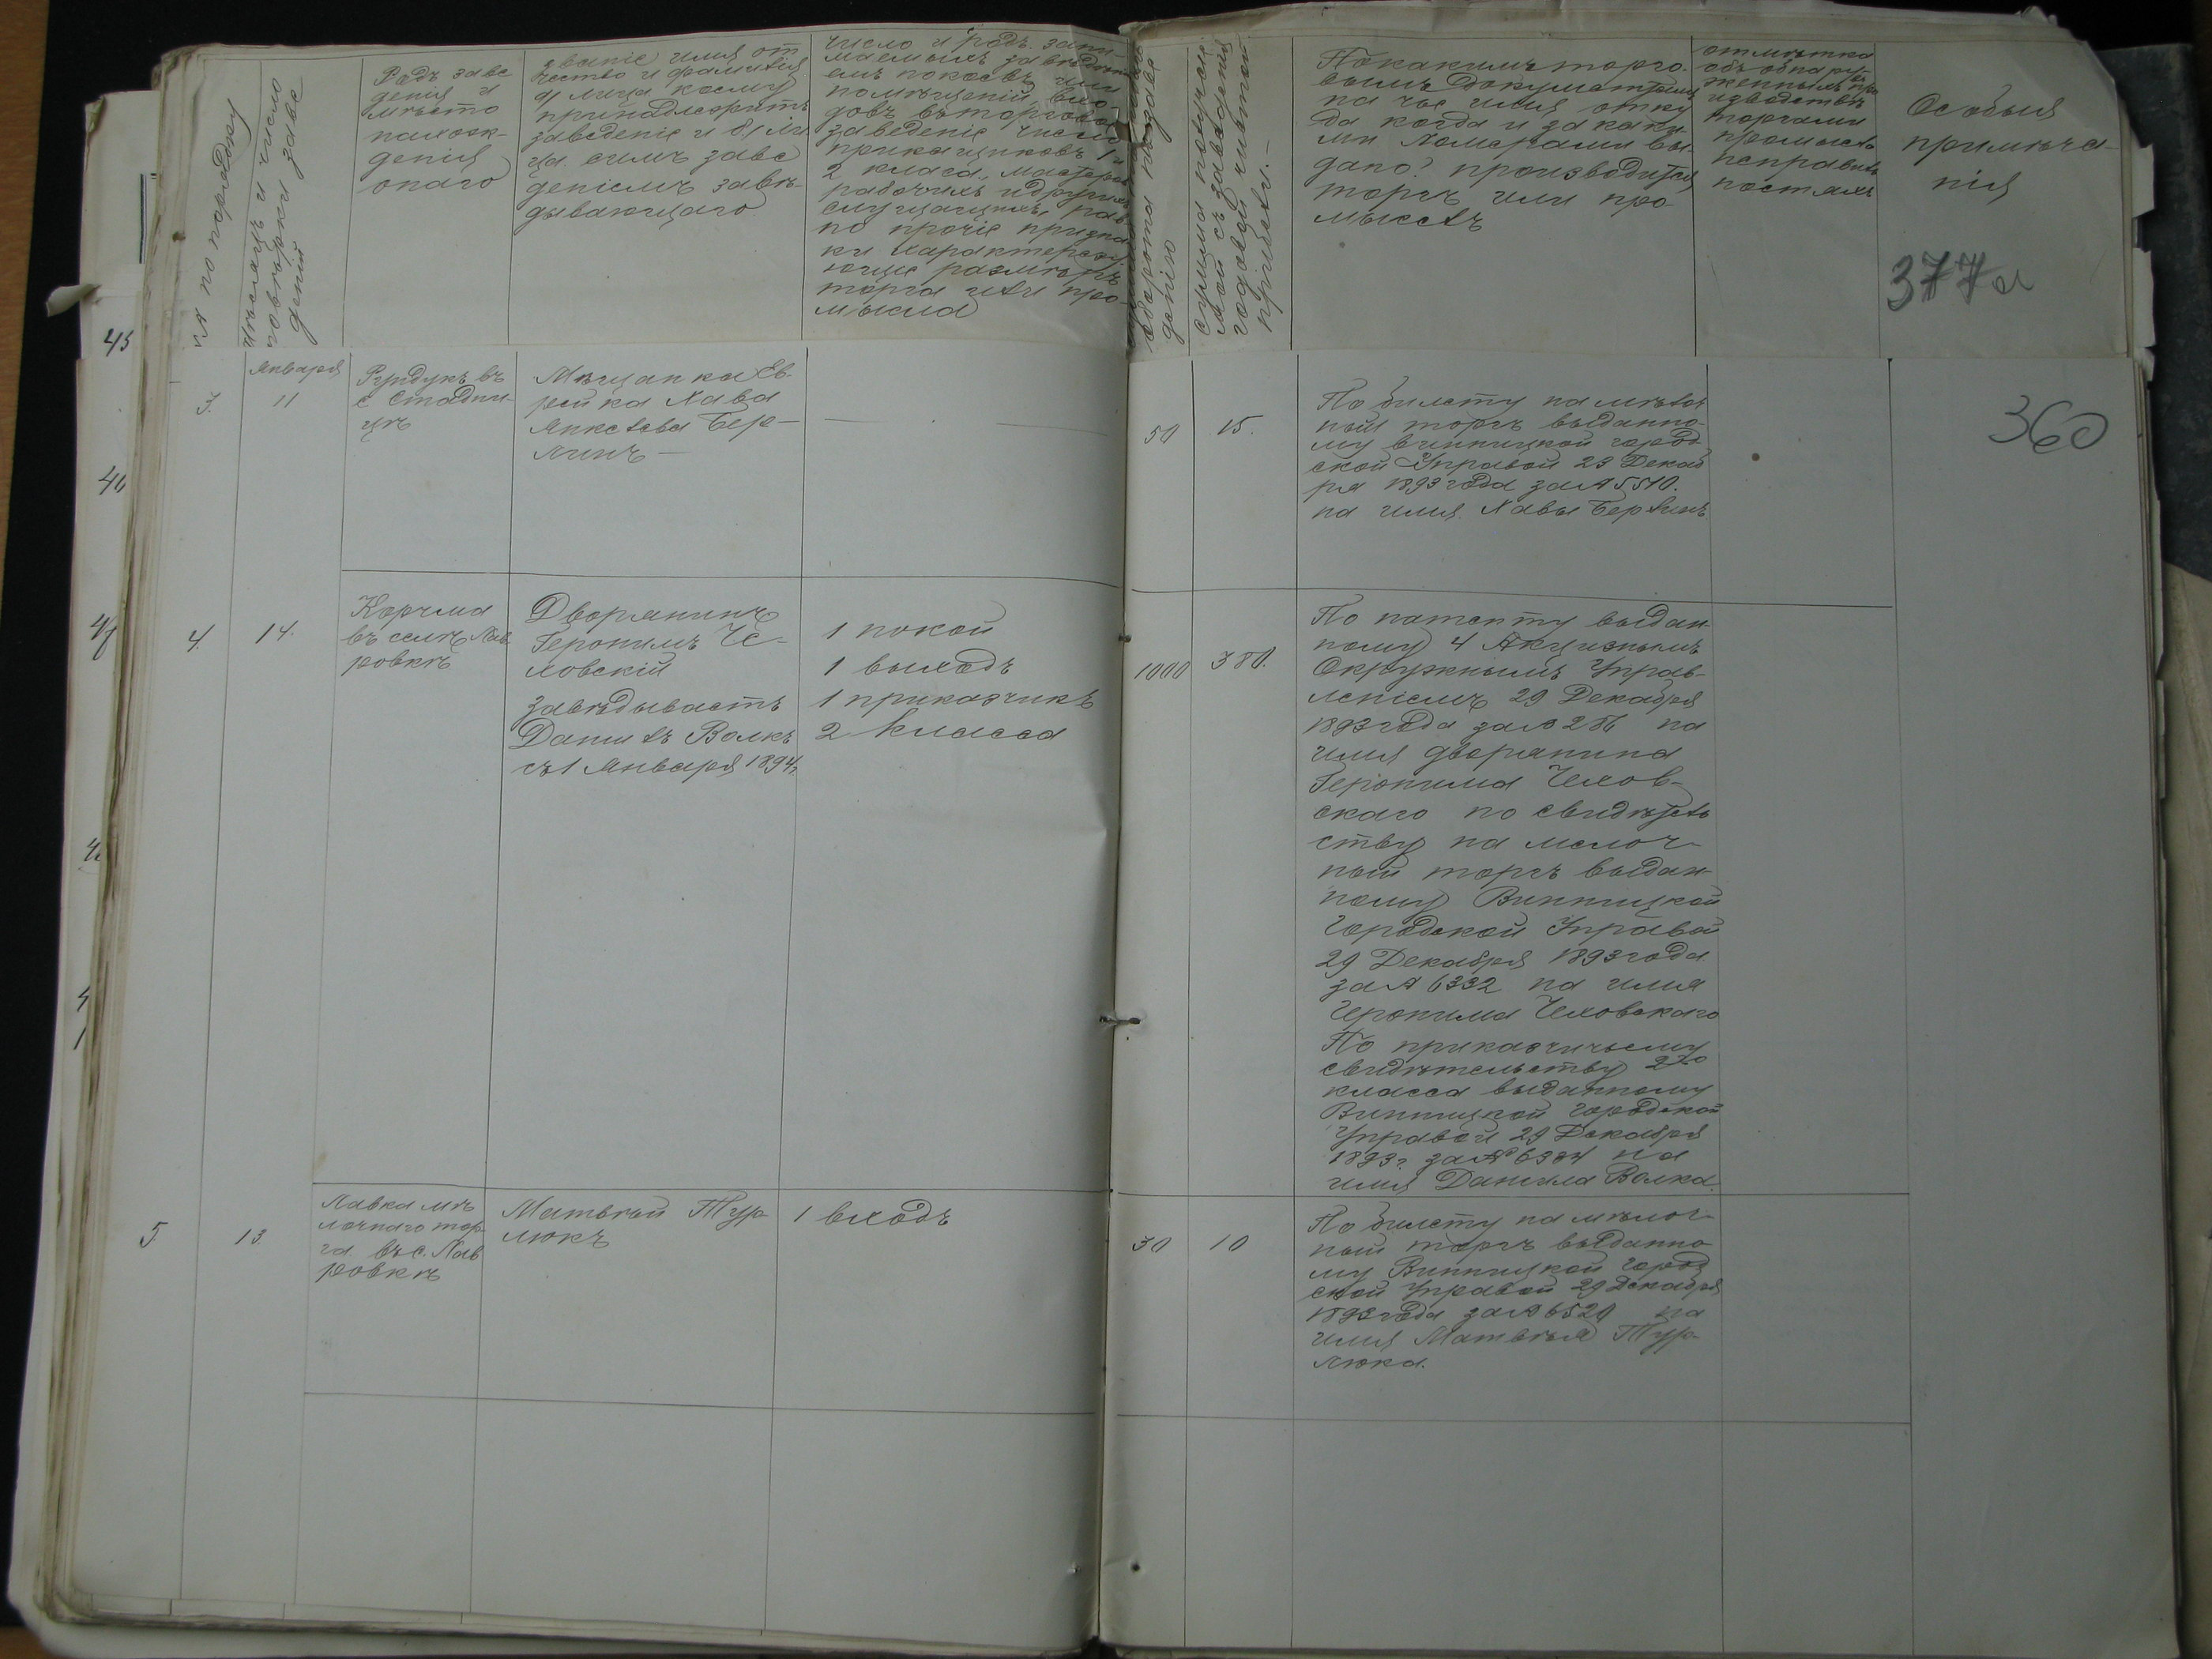 № по порядку
Мѣсяцъ и число
повѣрки заве
деній
Родъ заве
денія и
мѣсто
нахож-
денія
онаго
званіе имя от
чество и фамилія
а/ лица коему
принадлежитъ
заведеніе и б/ ли
ца симъ заве
деніемъ завѣ-
дывающаго
число и родъ зани
маемыхъ заведені
емъ покоевъ или
помѣщеній, вхо-
довъ въ торговое
заведеніе число
прикащиковъ 1 и
2 класа, мастеров
рабочихъ и другихъ
служащихъ, рав
но прочіе призна
ки характеризу
ющіе размѣръ
торга или про-
мысла
оборота по заве
денію
сумма получае
мой съ заведенія
годовой чистой
прибыли.-
По какимъ торго-
вымъ документамъ
на чье имя отку
да когда и за каки
ми Номерами вы
дано? производится
торгъ или про
мыселъ
отмѣтка
объ обнару-
женныхъ при
производствѣ
торгами
промысл
неправиль
ностяхъ
Особыя
примѣча-
нія
377а
45
3.
Января
11
Рундукъ въ
с Стадни-
цѣ
Мѣщанка Ев-
рейка Хава
Янкелева Бер-
линъ —
50
15.
По билету на мѣлоч
ный торгъ выданно-
му винницкой город
ской Управой 23 Декаб
ря 1893 года за № 5510.
на имя Хавы Берлинъ
360
4.
14.
Корчма
въ селѣ Лав
ровкѣ
Дворянинъ
Геронимъ Че-
ховскій
завѣдываетъ
Данилъ Волкъ
съ 1 Января 1894 г.
1 покой
1 выходъ
1 приказчикъ
2 класса
1000
380.
По патенту выдан
ному 4 Акцизнымъ
Окружнымъ Управ-
леніемъ 29 Декабря
1893 года за № 286 на
имя дворянина
Геронима Чехов-
скаго по свидѣтель
ству на мелоч-
ный торгъ выдан-
ному Винницкой
Городской Управой
29 Декабря 1893 года
за № 6332 на имя
Геронима Чеховскаго
По приказчичьему
свидѣтельству 2го
класса выданному
Винницкой Городской
Управой 29 Декабря
1893 г. за № 6384 на
имя Данила Волка.
5.
13.
Лавка мѣ
лочнаго тор
га въ с. Лав
ровкѣ
Матвѣй Тур-
люкъ
1 входъ
30
10
По билету на мѣлоч-
ный торгъ выданно
му Винницкой Город
ской Управой 29 Декабря
1893 года за № 6529 на
имя Матвѣя Тур-
люка.